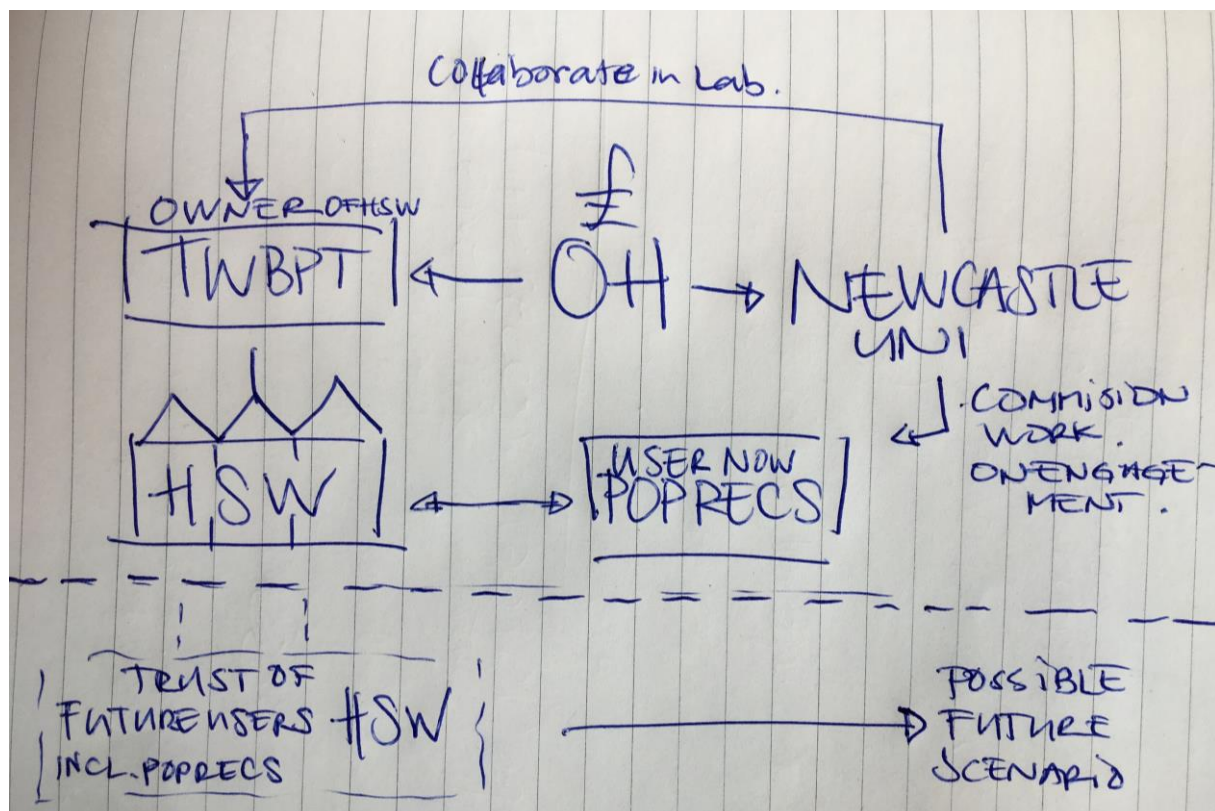 Collaborate in Lab.
OWNER OF HSW
TWBPT
£
OH
NEWCASTLE
UNI
COMMISION
WORK.
ON ENGAGE-
MENT.
HSW
USER NOW
POP RECS
TRUST OF
FUTURE USERS
INCL. POPRECS
HSW
POSSIBLE
FUTURE
SCENARIO